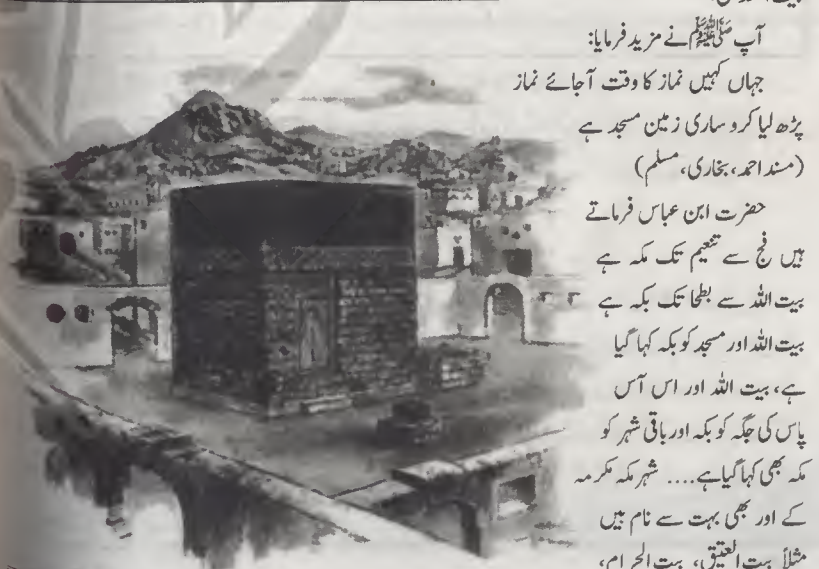 آپ ﷺ نے مزید فرمایا:
جہاں کہیں نماز کا وقت آجائے نماز
پڑھ لیا کرو ساری زمین مسجد ہے
(مسند احمد، بخاری، مسلم)
حضرت ابن عباس فرماتے
ہیں فج سے تنعیم تک مکہ ہے
بیت اللہ سے بطحا تک بکہ ہے
بیت اللہ اور مسجد کو بکہ کہا گیا
ہے، بیت اللہ اور اس آس
پاس کی جگہ کو بکہ اور باقی شہر کو
مکہ بھی کہا گیا ہے.... شہر مکہ مکرمہ
کے اور بھی بہت سے نام ہیں
مثلاً بیت العتیق، بیت الحرام،